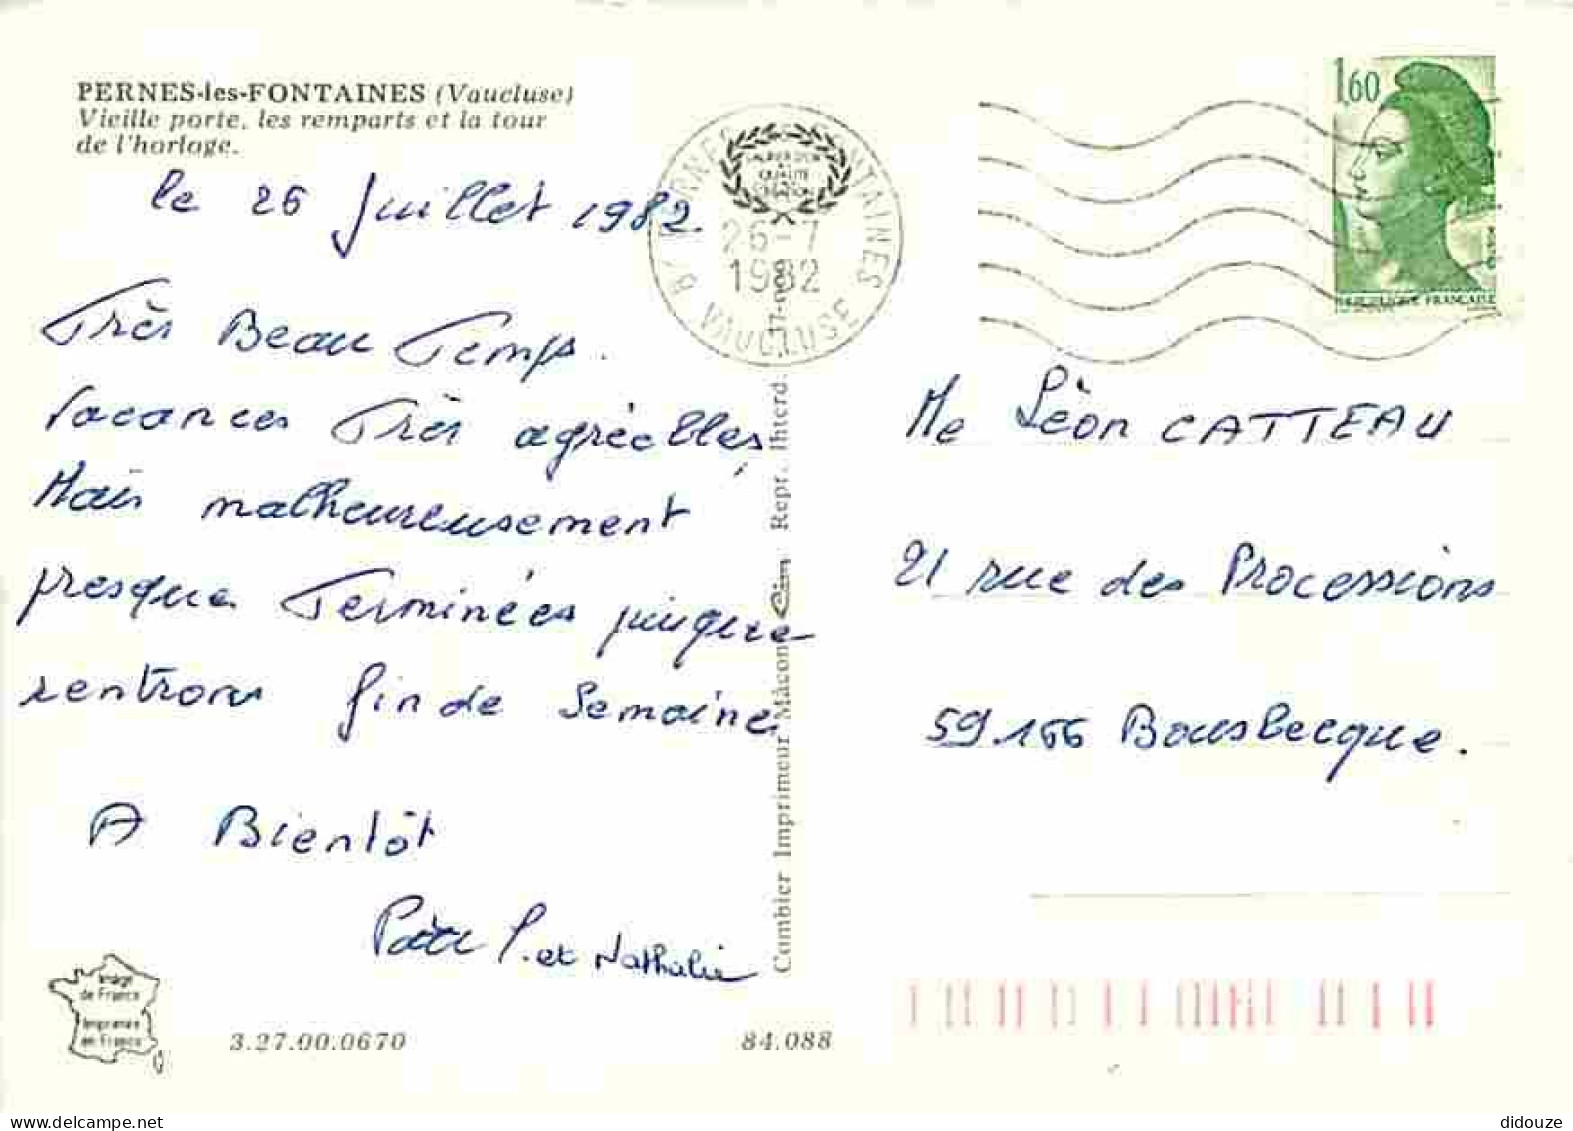 PERNES-les-FONTAINES (Vaucluse)
Vieille porte, les remparts et la tour
de l'horloge.
le 26 Juillet 1982
Très Beau Temps.
Vacances Très agréables,
Mais malheureusement
presque Terminées puisque
rentrons fin de Semaine
A Bientôt
P. et Nathalie
Image
de France
Imprimée
en France
3.27.00.0670
84.088
Combier Imprimeur Mâcon Cim Repr. Interd.
FONTAINES
QUALITÉ
26-7
1982
VAUCLUSE
1,60
REPUBLIQUE FRANÇAISE
Me Lèon CATTEAU
21 rue des Processions
59166 Bousbecque.
didouze
delcampe.net